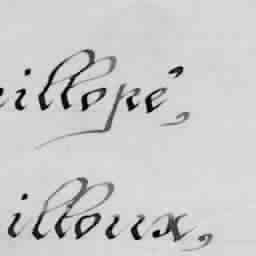 illopé,
illoux,